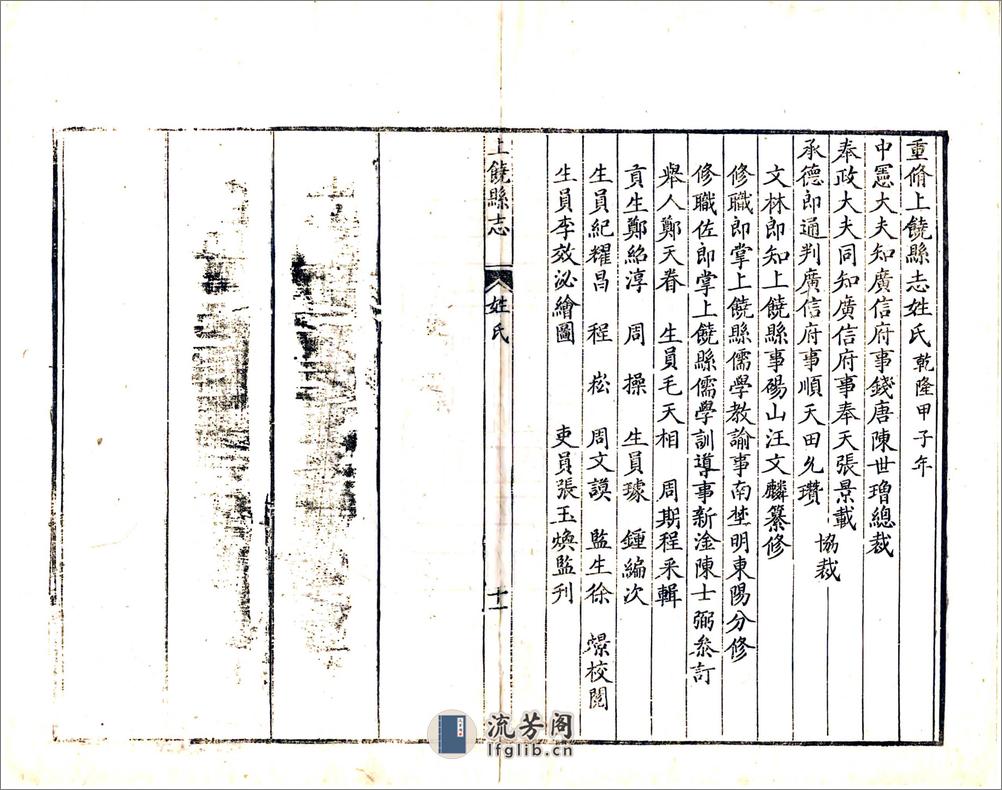 重脩上饒縣志姓氏 乾隆甲子年
中憲大夫知廣信府事錢唐陳世璔總裁
奉政大夫同知廣信府事奉天張景載
承德郎通判廣信府事順天田允瓚
協裁
文林郎知上饒縣事碭山汪文麟纂修
修職郎掌上饒縣儒學教諭事南埜明東陽分修
修職佐郎掌上饒縣儒學訓導事新淦陳士弼叅訂
舉人鄭天眷 生員毛天相 周期程采輯
貢生鄭紹淳 周操 生員璩鍾編次
生員紀耀昌 程崧 周文謨 監生徐㬢校閱
生員李效泌繪圖 吏員張玉煥監刊
上饒縣志 姓氏 十一
流芳阁
lfglib.cn